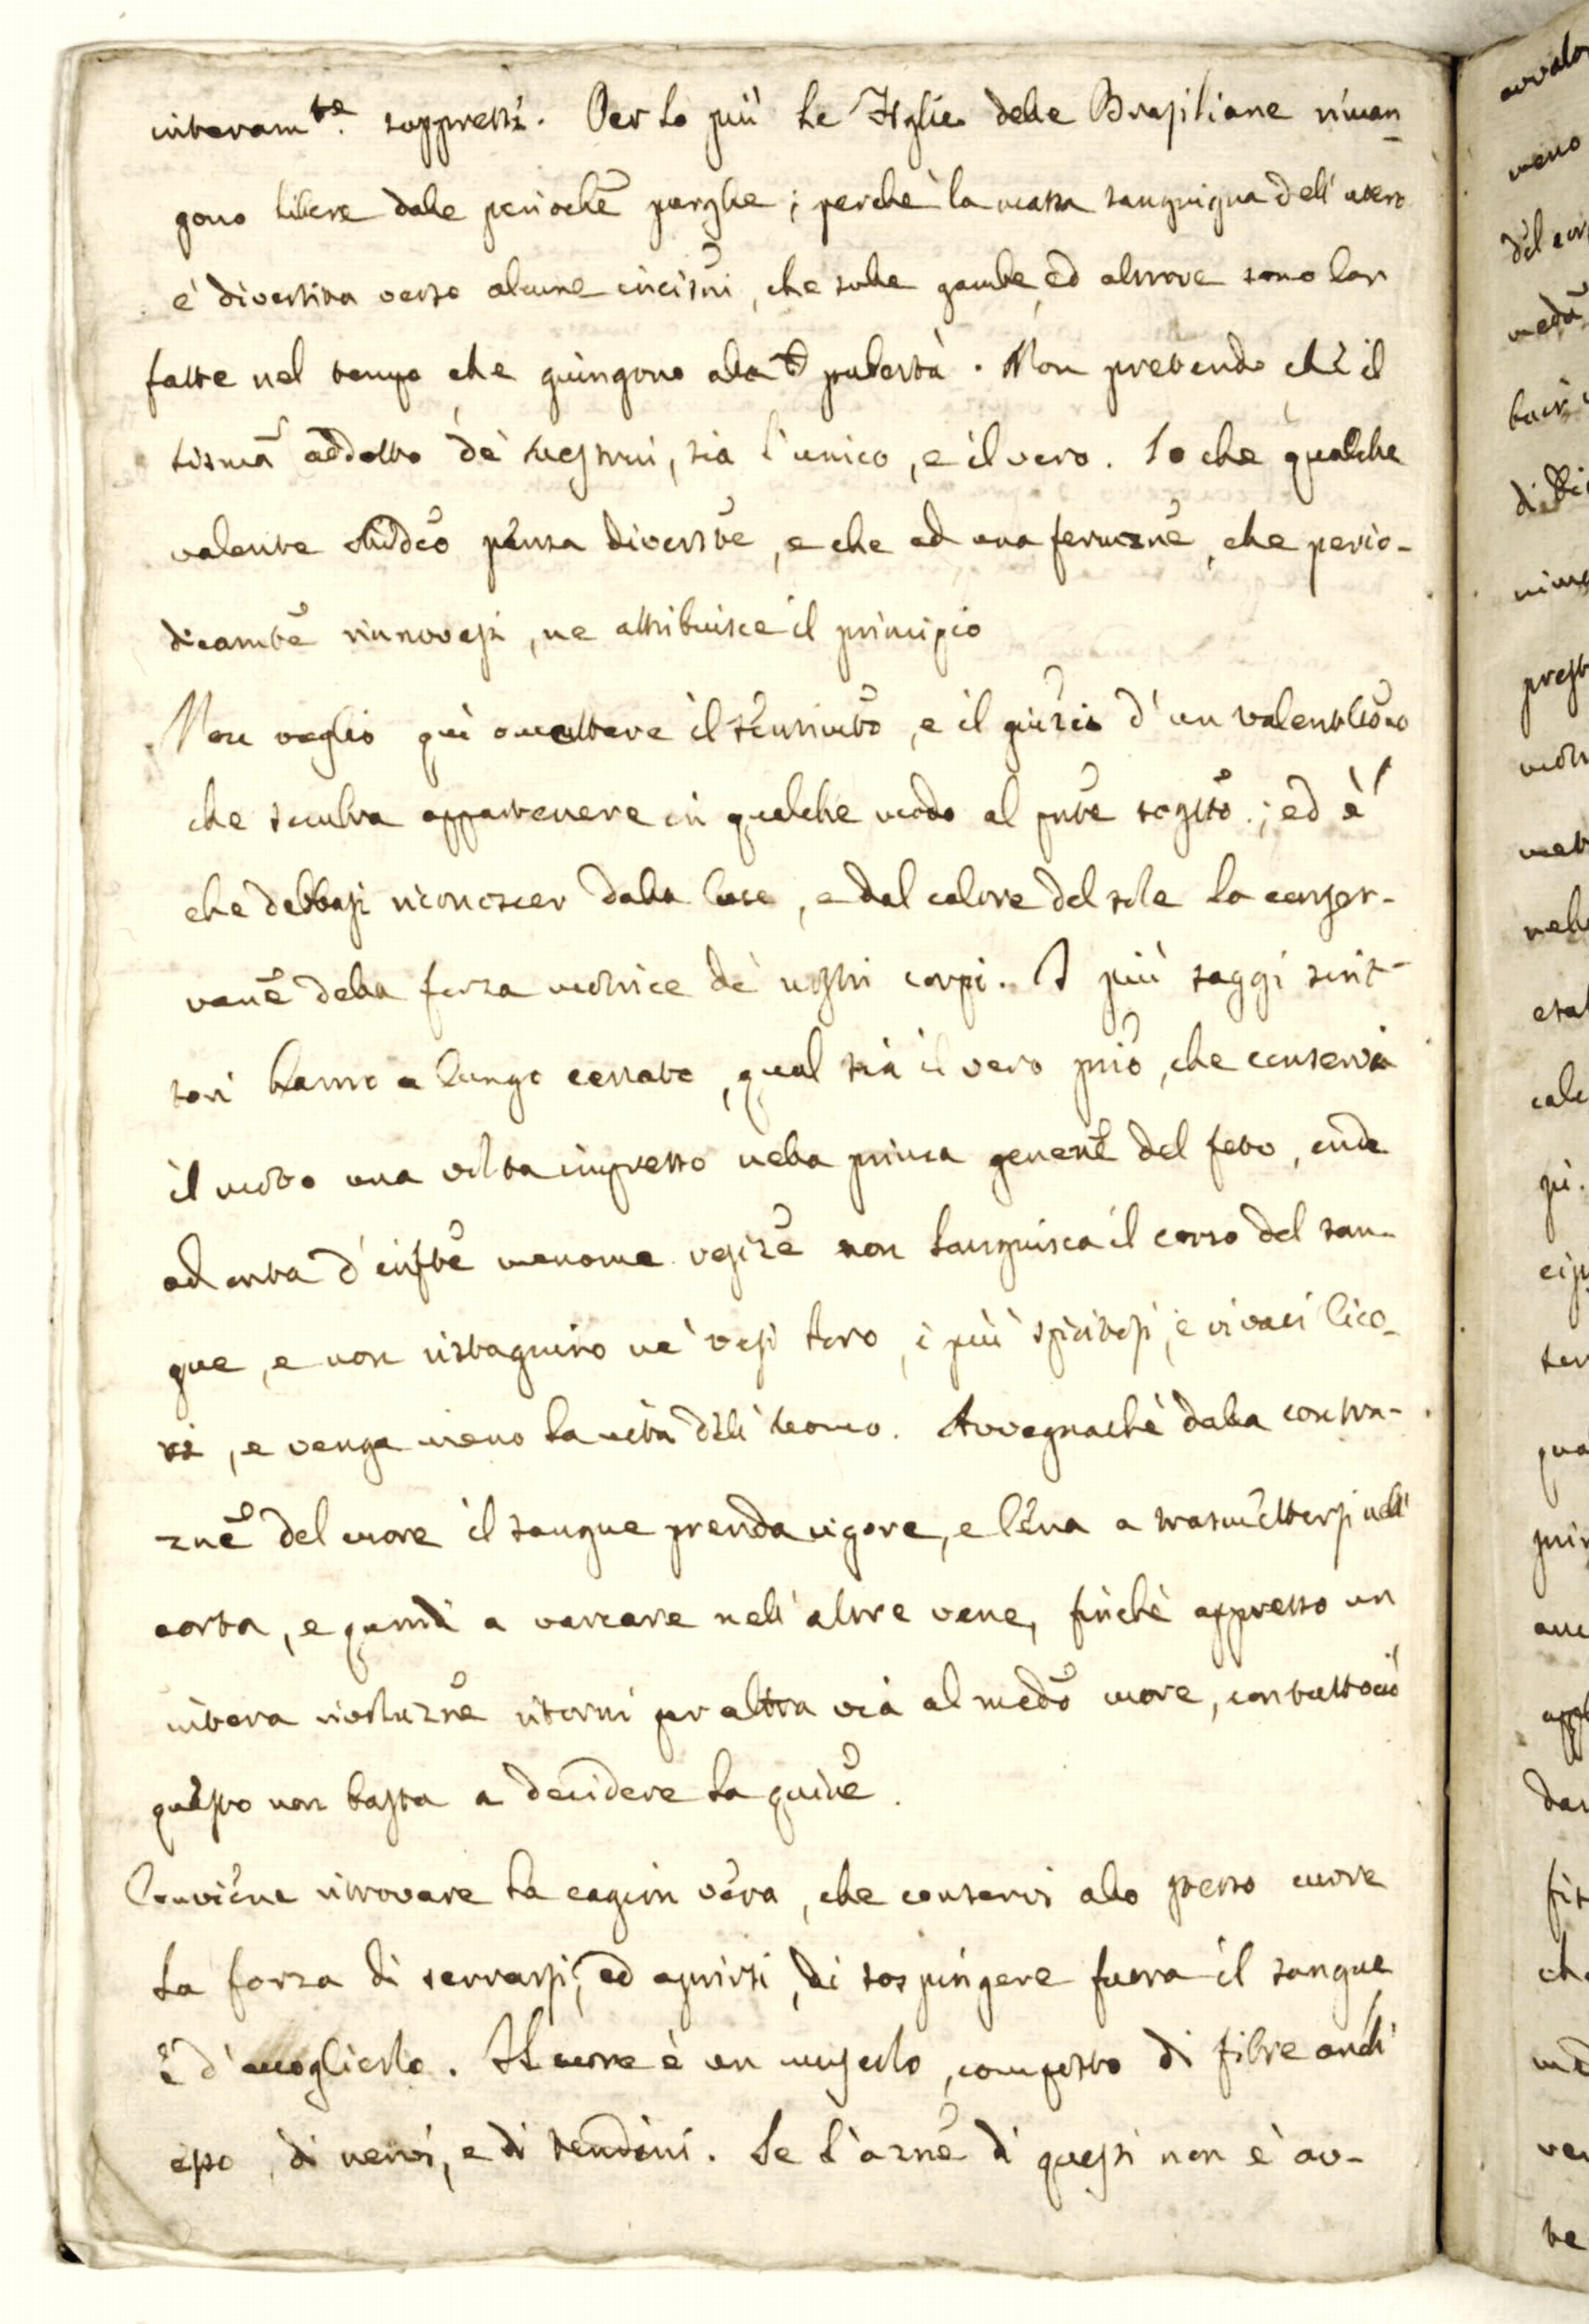 interam.te soppressi. Per lo più le Figlie delle Brasiliane riman-
gono libere dalle perioche purghe; perchè la massa sanguigna dell'utero
è divertita verso alcune incisni, che sulle gambe, ed altrove sono lor
fatte nel tempo che giungono alla pubertà. Non pretendo che il
sisma addotto de' mestrui, sia l'unico, e il vero. So che qualche
valente penza diverste, e che ad una fermzne, che perio-
dicamte rinnovasi, ne attribuisce il principio
Non voglio quì omettere il sentimto, e il giuzio d'un valentuomo
che sembra appartenere in qualche modo al pnte sogtto; ed è
che debbasi riconoscer dalla luce, e dal calore del sole la conser-
vane della forza motrice de' nostri corpi. I più saggi scrit-
tori hanno a lungo cercato, qual sia il vero prio, che conservi
il moto una volta impresso nella prima generne del feto, onde
ad onta d'infte menome non languisca il corso del san-
gue, e non ristagnino ne' vasi loro, i più spiritosi, e vivaci lico-
ri, e venga meno la vita dell'uomo. Avvegnachè dalla contra-
zne del cuore il sangue prenda vigore, e lena a trasmettersi nell'
aorta, e quindi a varcare nell'altre vene, finchè appresso un
intera rivoluzne ritorni per altra via al medo cuore, contuttociò
questo non basta a decidere la quine.
Conviene ritrovare la cagion vera, che conservi allo stesso cuore
la forza di serrarsi, ed aprirsi, di sospingere fuora il sangue,
e d'accoglierlo. Il cuore è un musculo, composto di fibre anch'
esso, di nervi, e di tendini. Se l'azne di questi non è av-